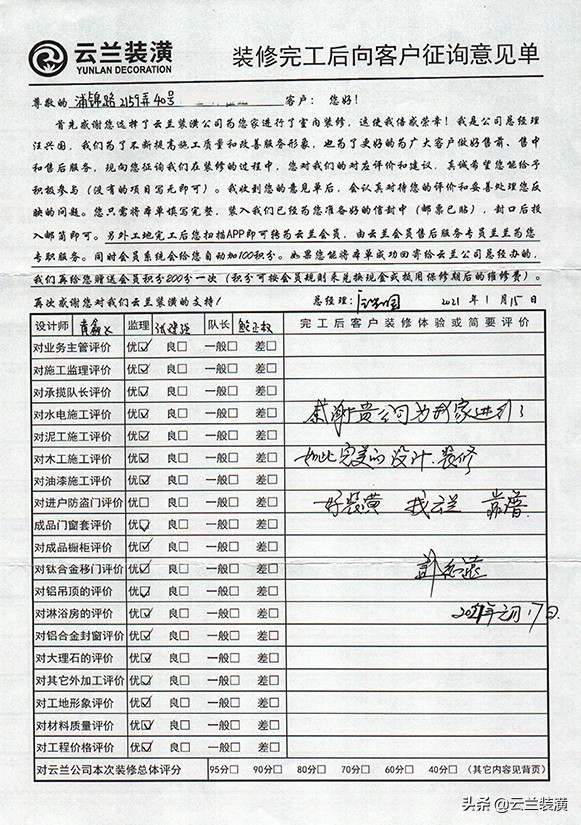 云兰装潢
YUNLAN DECORATION
装修完工后向客户征询意见单
尊敬的 浦锦路2159弄40号 客户：您好！
首先感谢您选择了云兰装潢公司为您家进行了室内装修，这使我倍感荣幸！我是公司总经理
汪兴国，我们为了不断提高施工质量和改善服务形象，也为了更好的为广大客户做好售前、售中
和售后服务，现向您征询我们在装修的过程中，您对我们的对应评价和建议，真诚希望您能给予
积极参与（没有的项目写无即可）。我收到您的意见单后，会认真对待您的评价和妥善处理您反
映的问题。您只需将本单填写完整，装入我们已经为您准备好的信封中（邮票已贴），封口后投
入邮筒即可。另外工地完工后您扫描APP即可转为云兰会员，由云兰会员售后服务专员兰兰为您
专职服务。同时会员系统会给您自动加100积分。如果您能将本单成功回寄给云兰公司总经办的，
我们再给您赠送会员积分200分一次（积分可按会员规则来兑换现金或抵用保修期后的维修费）。
再次感谢您对我们云兰装潢的支持！ 总经理： 2021年1月15日
设计师 监理 队长 完工后客户装修体验或简要评价
对业务主管评价 优☑ 良□ 一般□ 差□
对施工监理评价 优☑ 良□ 一般□ 差□
对承揽队长评价 优☑ 良□ 一般□ 差□
对水电施工评价 优☑ 良□ 一般□ 差□ 感谢贵公司为我家进行了
对泥工施工评价 优☑ 良□ 一般□ 差□
对木工施工评价 优☑ 良□ 一般□ 差□ 如此完美的设计、装修
对油漆施工评价 优☑ 良□ 一般□ 差□
对进户防盗门评价 优□ 良□ 一般□ 差□ 好装潢 找云兰 靠谱
成品门窗套评价 优☑ 良□ 一般□ 差□
对成品橱柜评价 优☑ 良□ 一般□ 差□
对钛合金移门评价 优☑ 良□ 一般□ 差□
对铝吊顶的评价 优☑ 良□ 一般□ 差□
对淋浴房的评价 优☑ 良□ 一般□ 差□ 2021年元月17日
对铝合金封窗评价 优☑ 良□ 一般□ 差□
对大理石的评价 优☑ 良□ 一般□ 差□
对其它外加工评价 优☑ 良□ 一般□ 差□
对工地形象评价 优☑ 良□ 一般□ 差□
对材料质量评价 优☑ 良□ 一般□ 差□
对工程价格评价 优☑ 良□ 一般□ 差□
对云兰公司本次装修总体评分 95分□ 90分□ 80分□ 70分□ 60分□ 40分□ （其它内容见背页）
头条 @云兰装潢